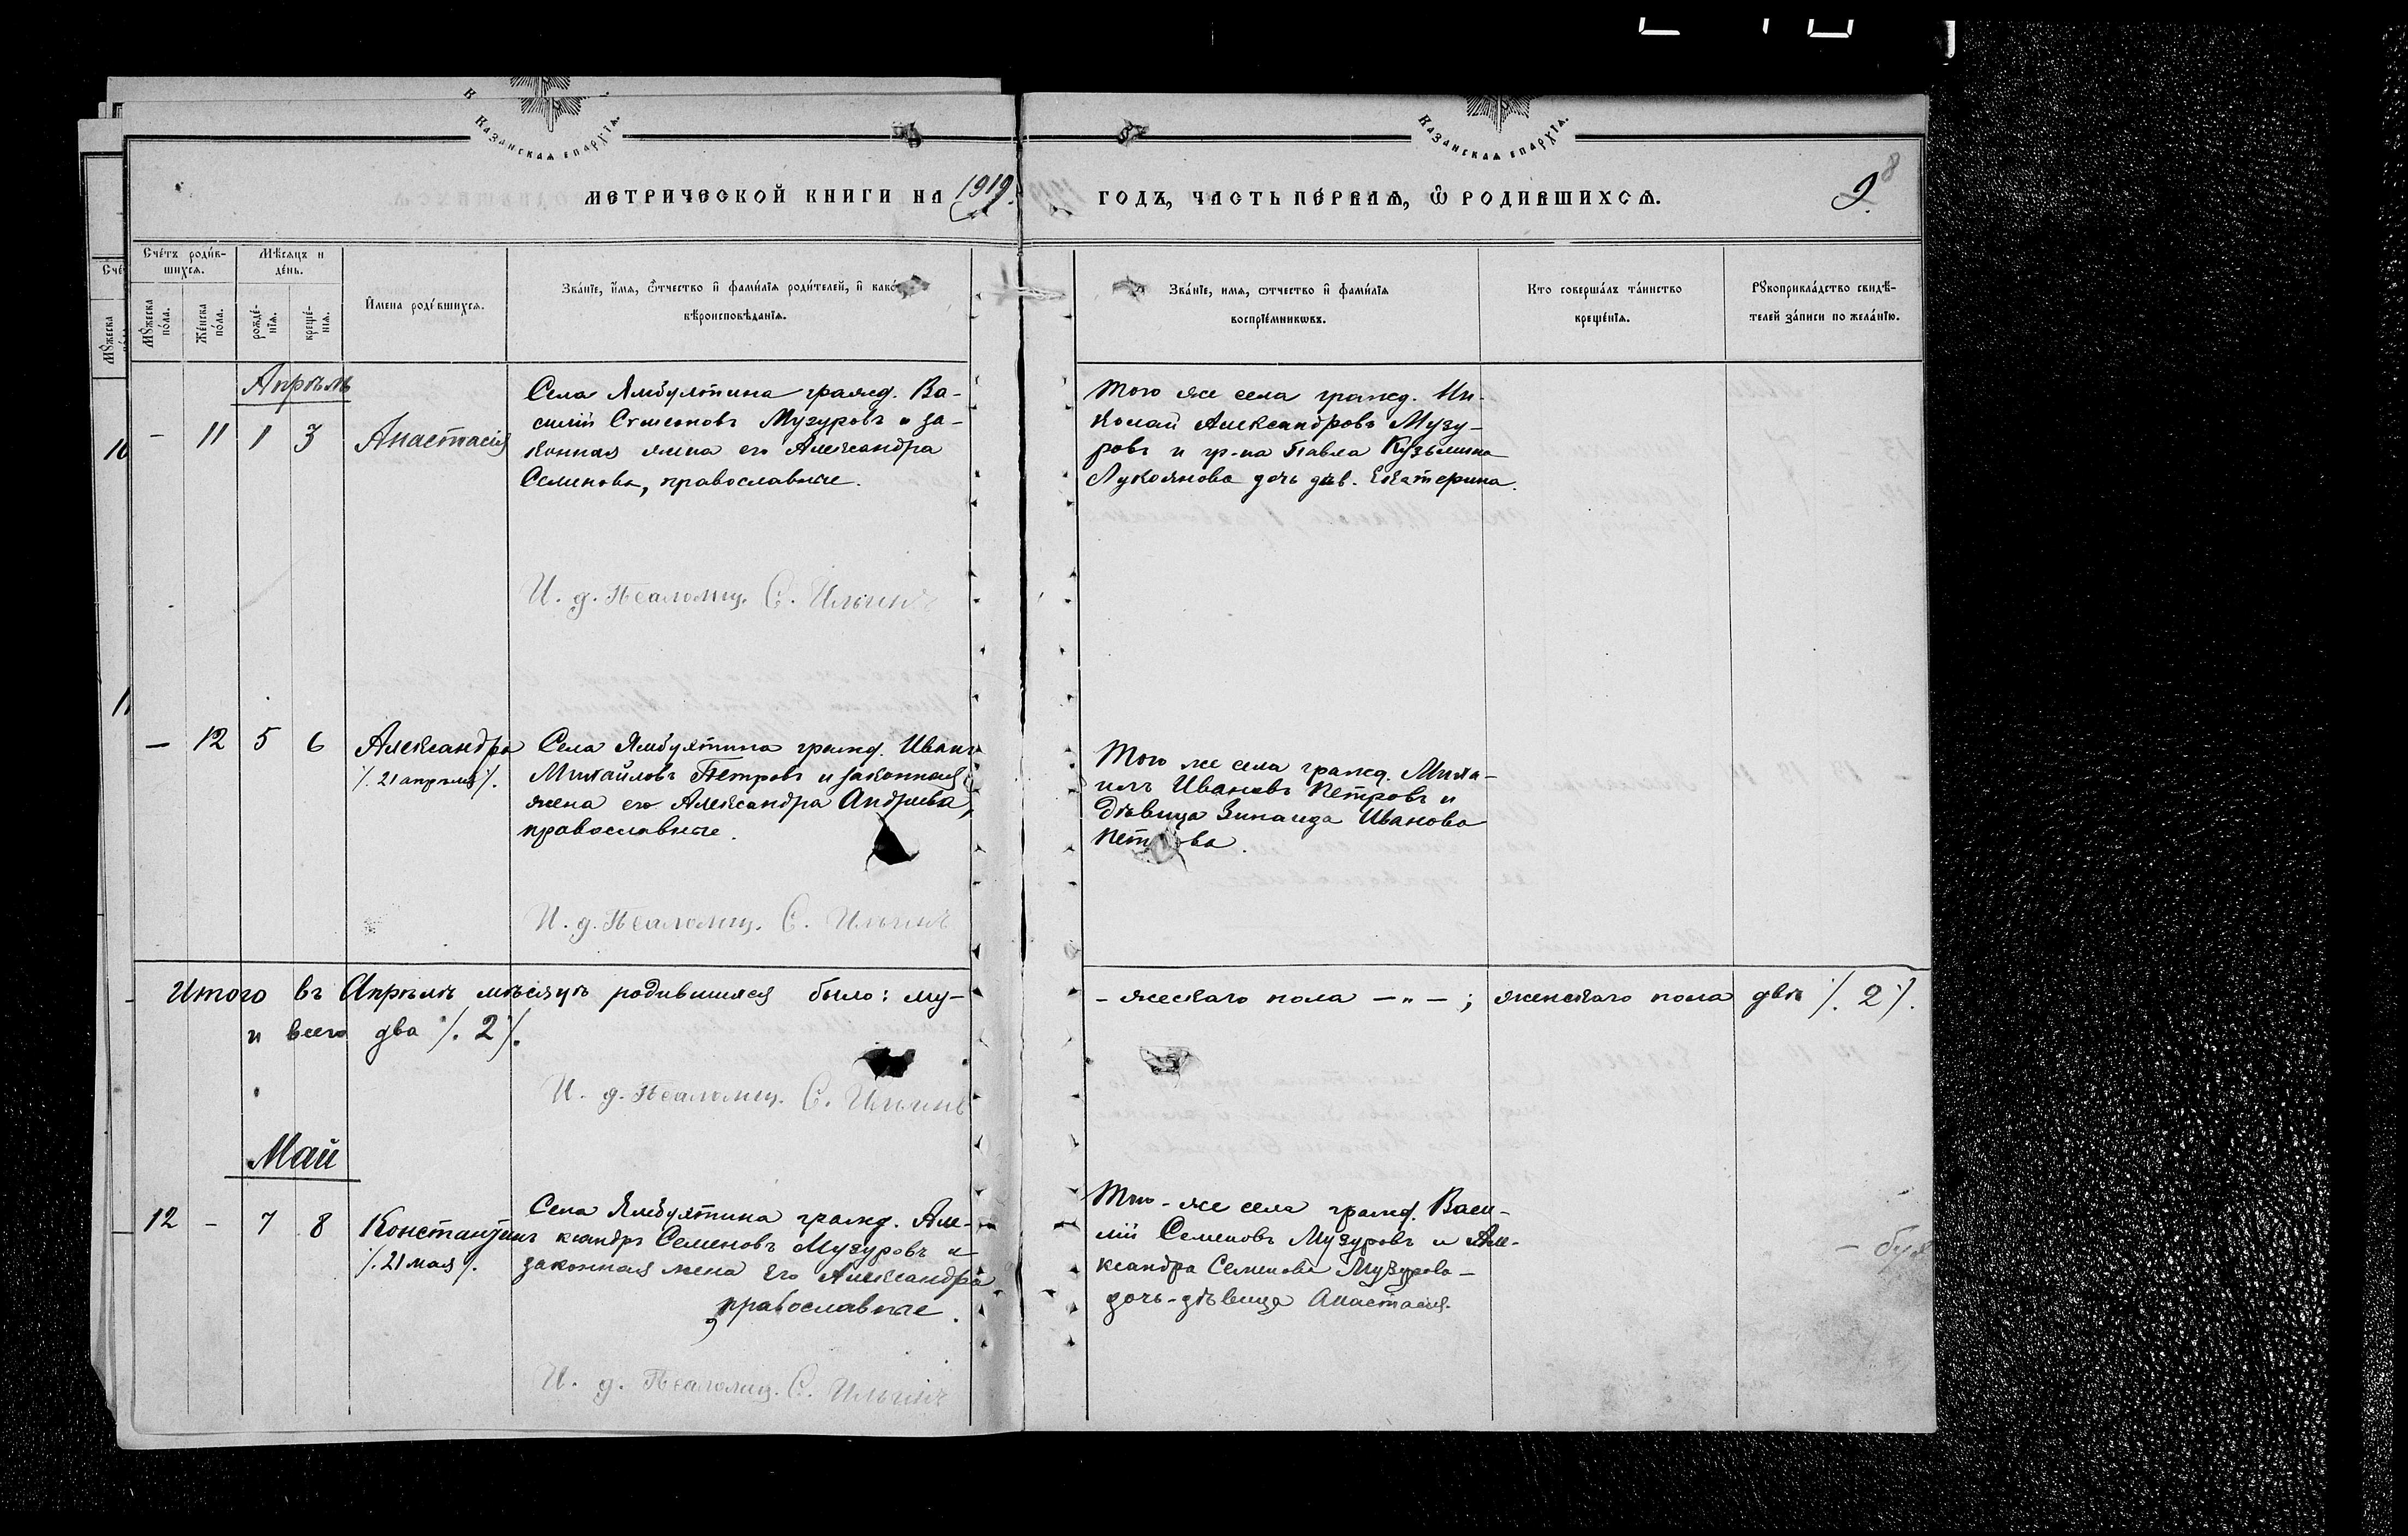 Казанская епархїѧ.
Казанская епархїѧ.
МЕТРИЧЕСКОЙ КНИГИ НА 1919
ГОДЪ, ЧАСТЬ ПЕ́РВАѦ, Ѡ РОДИВШИХСѦ.
9.
8
Сче́тъ роди́в-
шихсѧ.
Мѣ́сяцъ и
де́нь.
Мꙋ́жеска
по́ла.
Же́нска
по́ла.
рожде́-
нїѧ.
креще́-
нїѧ.
И́мена роди́вшихсѧ.
Зва́нїе, и́мѧ, ѻ҆́тчество и҆ фами́лїѧ роди́телей, и҆ како́
вѣроисповѣ́данїѧ.
Зва́нїе, имѧ, ѻтчество и҆ фами́лїѧ
воспрїе́мникѡвъ.
Кто соверша́лъ та́инство
креще́нїѧ.
Рꙋкоприкла́дство свидѣ́-
телей за́писи по жела́нїю.
Апрѣль
- 11 1 3 Анастасія
Села Ямбухтина гражд. Ва-
силій Семеновъ Музуровъ и за-
конная жена его Александра
Семенова, православные.
Того же села гражд. Ни-
колай Александровъ Музу-
ровъ и гр-на Павла Кузьмина
Лукоянова дочь дѣв. Екатерина.
И. д. Псаломщ. С. Ильинъ
- 12 5 6 Александра
/. 21 апрѣля /.
Села Ямбухтина гражд. Иванъ
Михайловъ Петровъ и законная
жена его Александра Андреева,
православные.
Того же села гражд. Миха-
илъ Ивановъ Петровъ и
дѣвица Зинаида Иванова
Петрова.
И. д. Псаломщ. С. Ильинъ
Итого въ Апрѣлѣ мѣсяцѣ родившихся было: му-
- жескаго пола - " - ; женскаго пола двѣ /. 2 /.
и всего два /. 2 /.
И. д. Псаломщ. С. Ильинъ
Май
12 - 7 8 Константинъ
/. 21 мая /.
Села Ямбухтина гражд. Але-
ксандръ Семеновъ Музуровъ и
законная жена его Александра
, православные.
Того-же села гражд. Васи-
лій Семеновъ Музуровъ и Але-
ксандра Семенова Музурова-
дочь-дѣвица Анастасія.
И. д. Псаломщ. С. Ильинъ